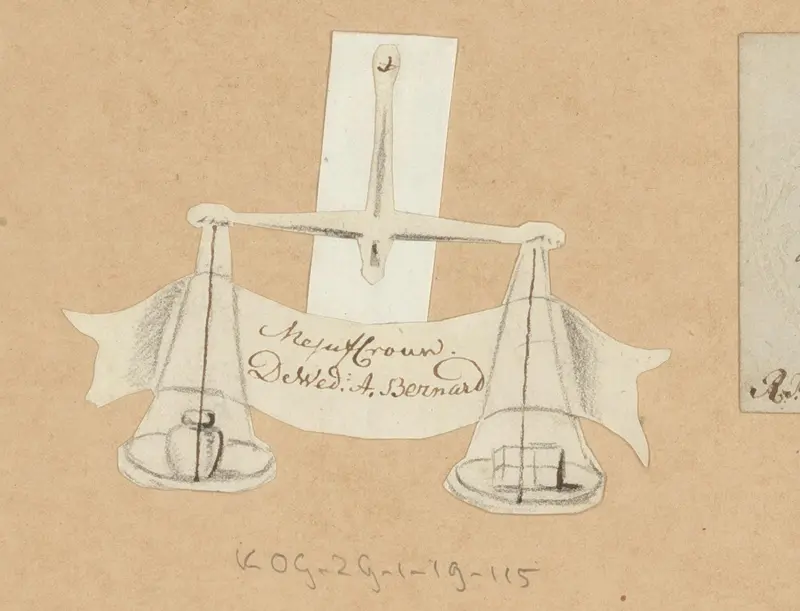 Mejuffrouw.
De Wed: A. Bernard
KOG-2G-1-19-115